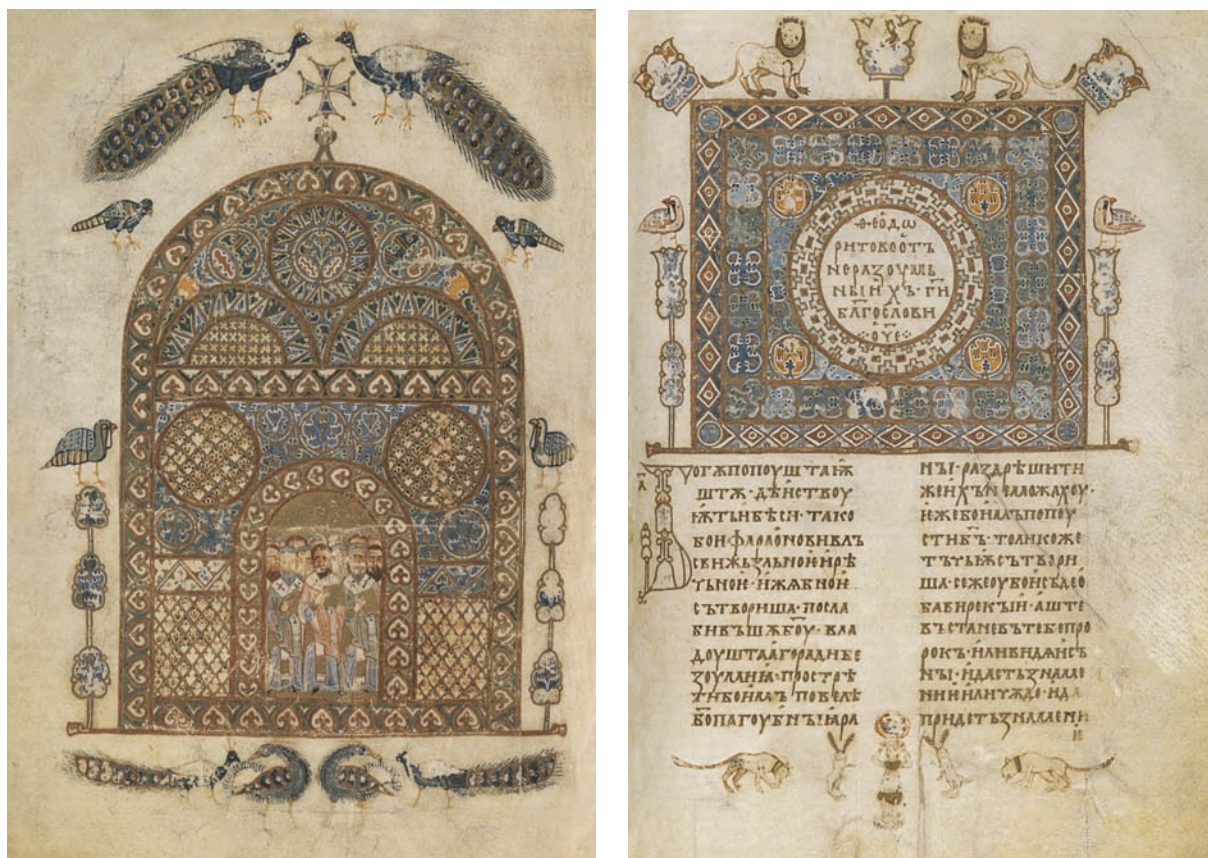 Ѳеодѡ
рито во отъ
неразоумь
ныихъ · ги
благослови
оч҃е
попоуштаѭ
штѫ · дѣиствоу
ѭтъ · тако
бо и фараонови влъ
сви жьзльнои и рѣ
чьнои · и жабнои
сътвориша · посла
бивъшѫ б҃оу · вла
доушта
зоумиꙗ · прострѣ
ти бо имъ повелѣ
бо пагоубьныи мра
ны · раздрѣшити
же ихъ не можахоу ·
иже бо имъ попоу
сти б҃ъ · толико же
тъчьѭ сътвори
ша · се же оубо и съ део
баби рекыи · аште
въстане въ тебе про
рокъ · или видѧи съ
ны · и дасть знаме
ние или чюждо · и да
придеть знамени
ѥ